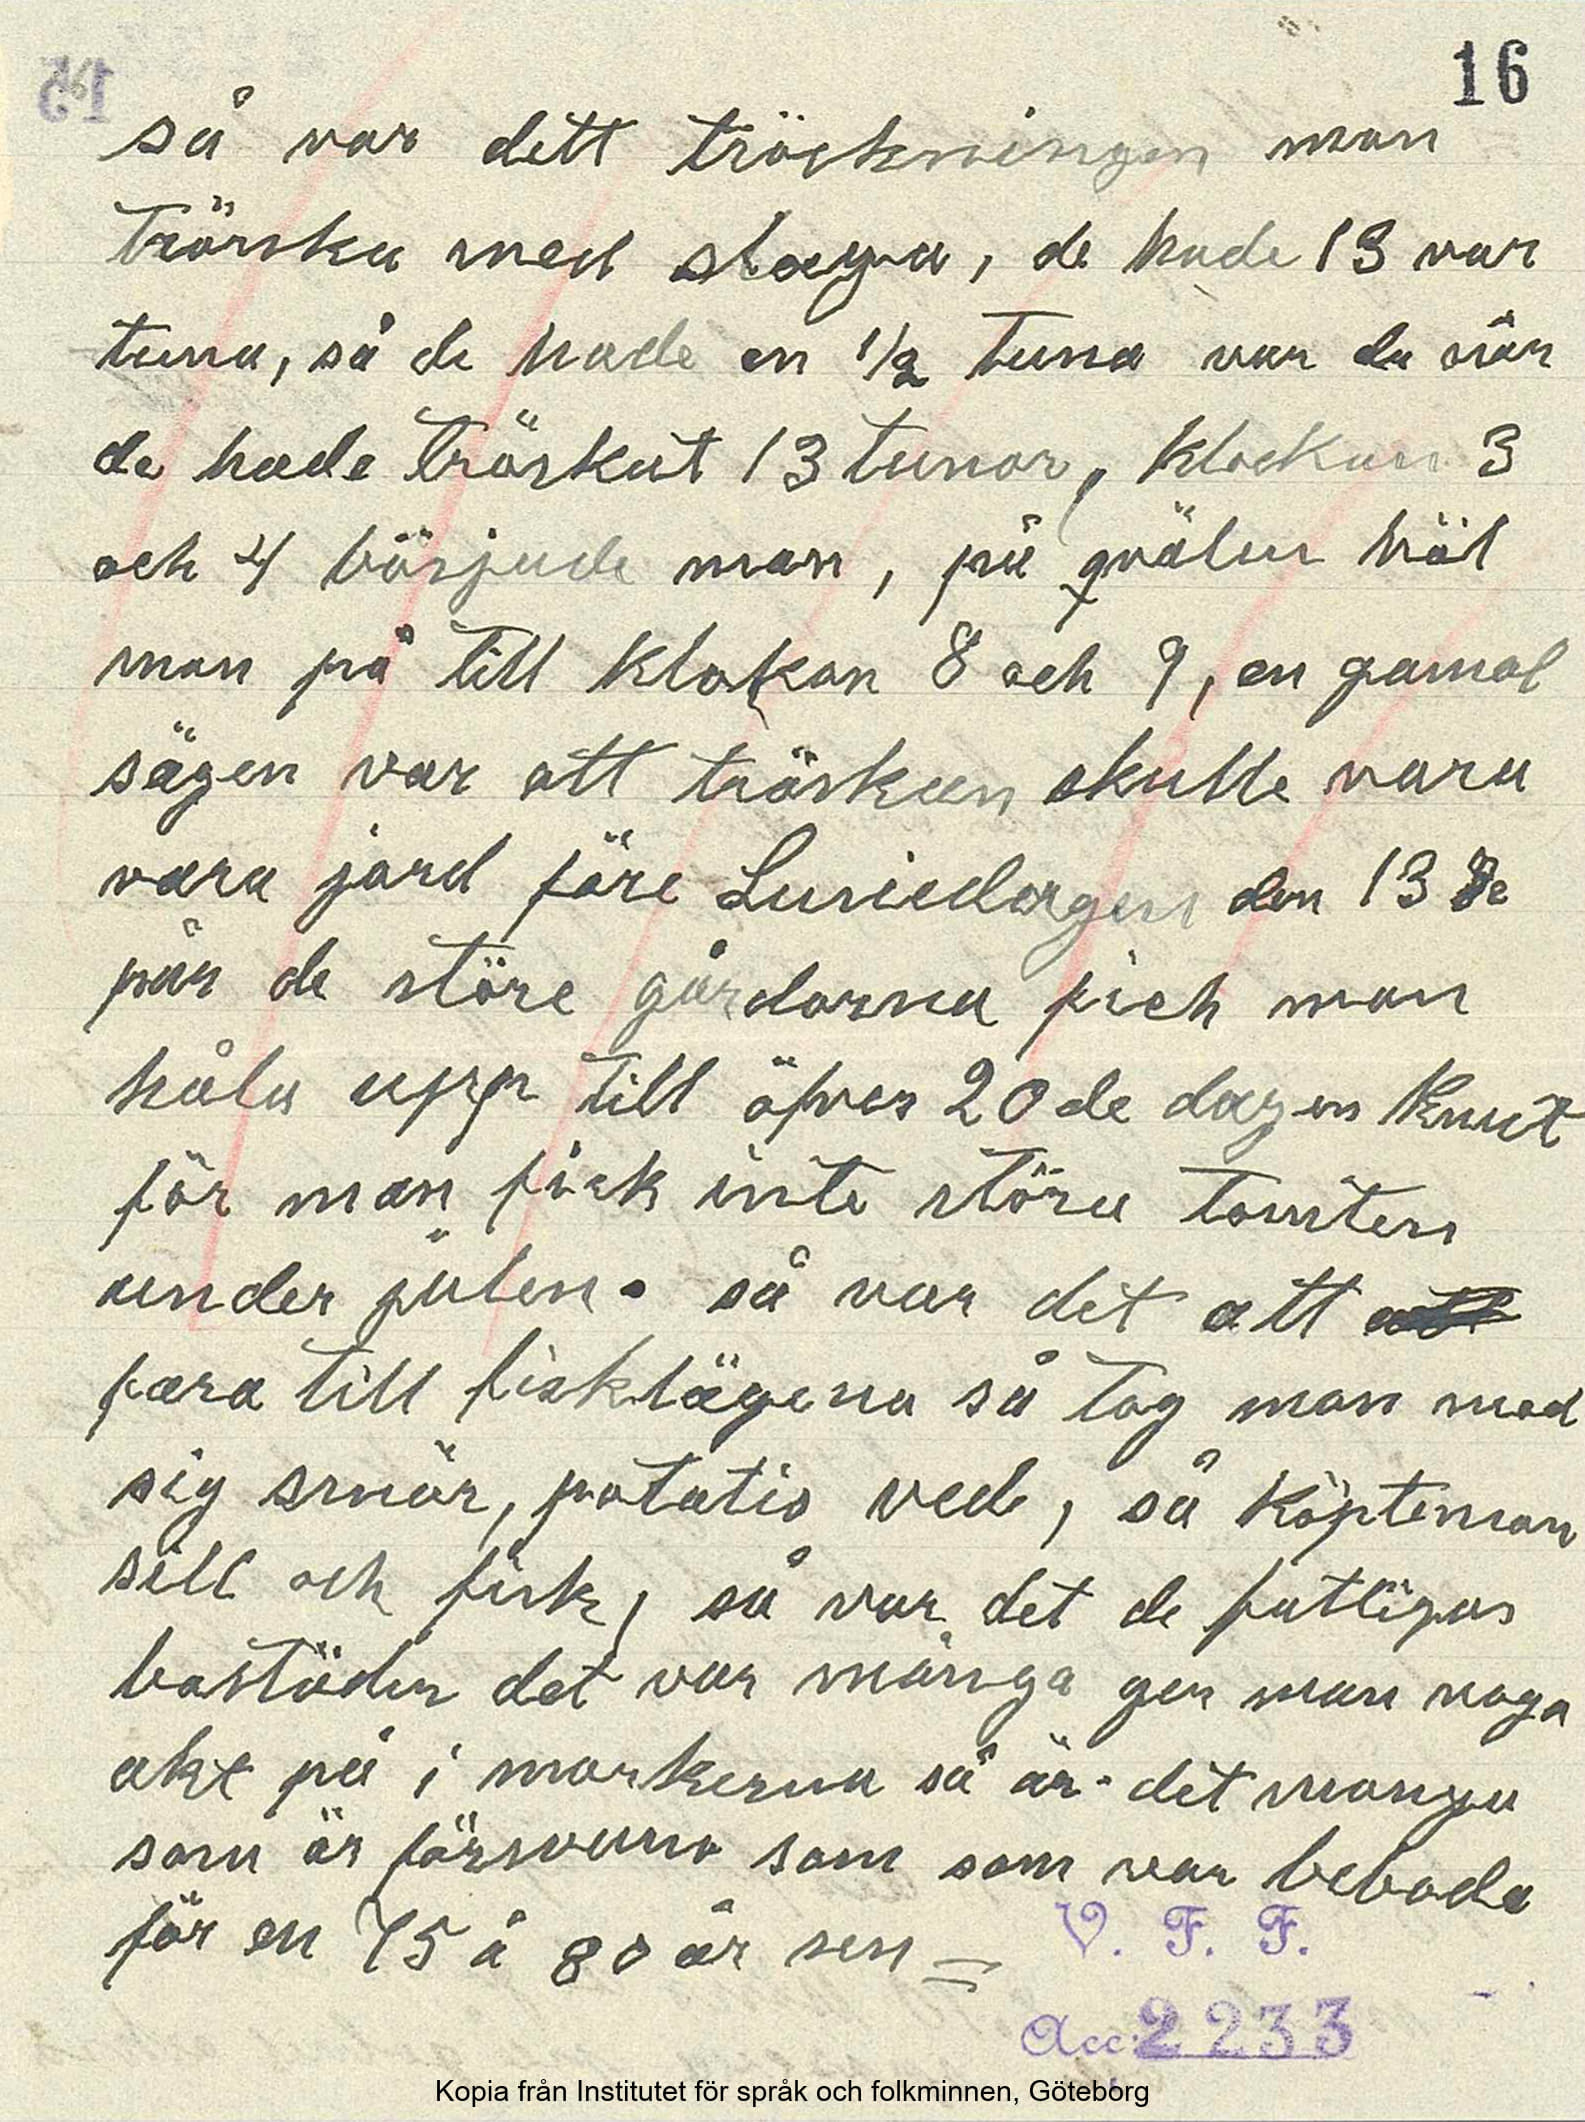 16
så var ditt tröskningen man
tröska med slaga, de hade 13 var
tuna, så de hade en 1/2 tuna var da når
de hade tröskat 13 tunor, klockan 3
och 4 började man, på qvälen höl
man på till klokan 8 och 9, en gamal
sägen var att tröskan skulle vara
vara jord före Luciedagen den 13 de
på de störe gårdarna fich man
håla upp till öfver 20 de dagen Knut
för man fick inte störa tomten
under julen. så var det att
fara till fisklägena så tog man med
sig smör, potatis ved, så köpteman
sill och fisk, så var det de fatligas
bostäder det var många ger man noga
akt på i markerna så är det manga
som är försvuno som som var bebodа
för en 75 å 80 år sen =
V. F. F.
Acc: 2233
Kopia från Institutet för språk och folkminnen, Göteborg